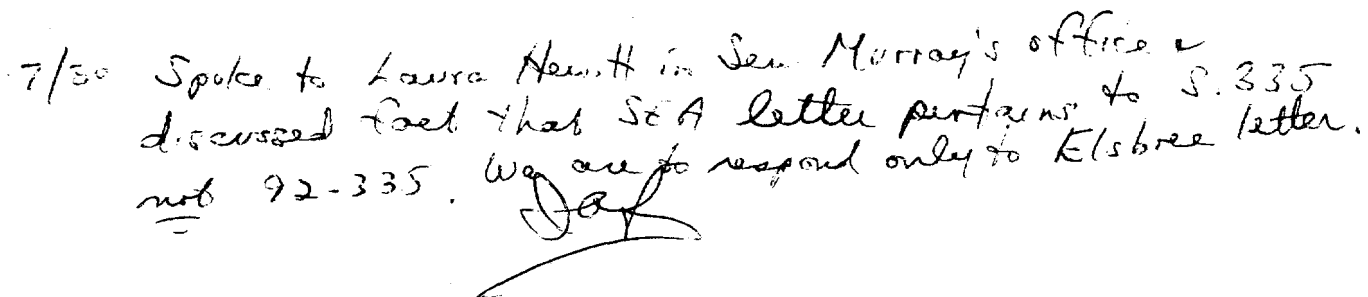 7/30 Spoke to Laura Hewitt in Sen Murray's office &
discussed fact that SEA letter pertains to S.335
not 92-335. We are to respond only to Elsbree letter.